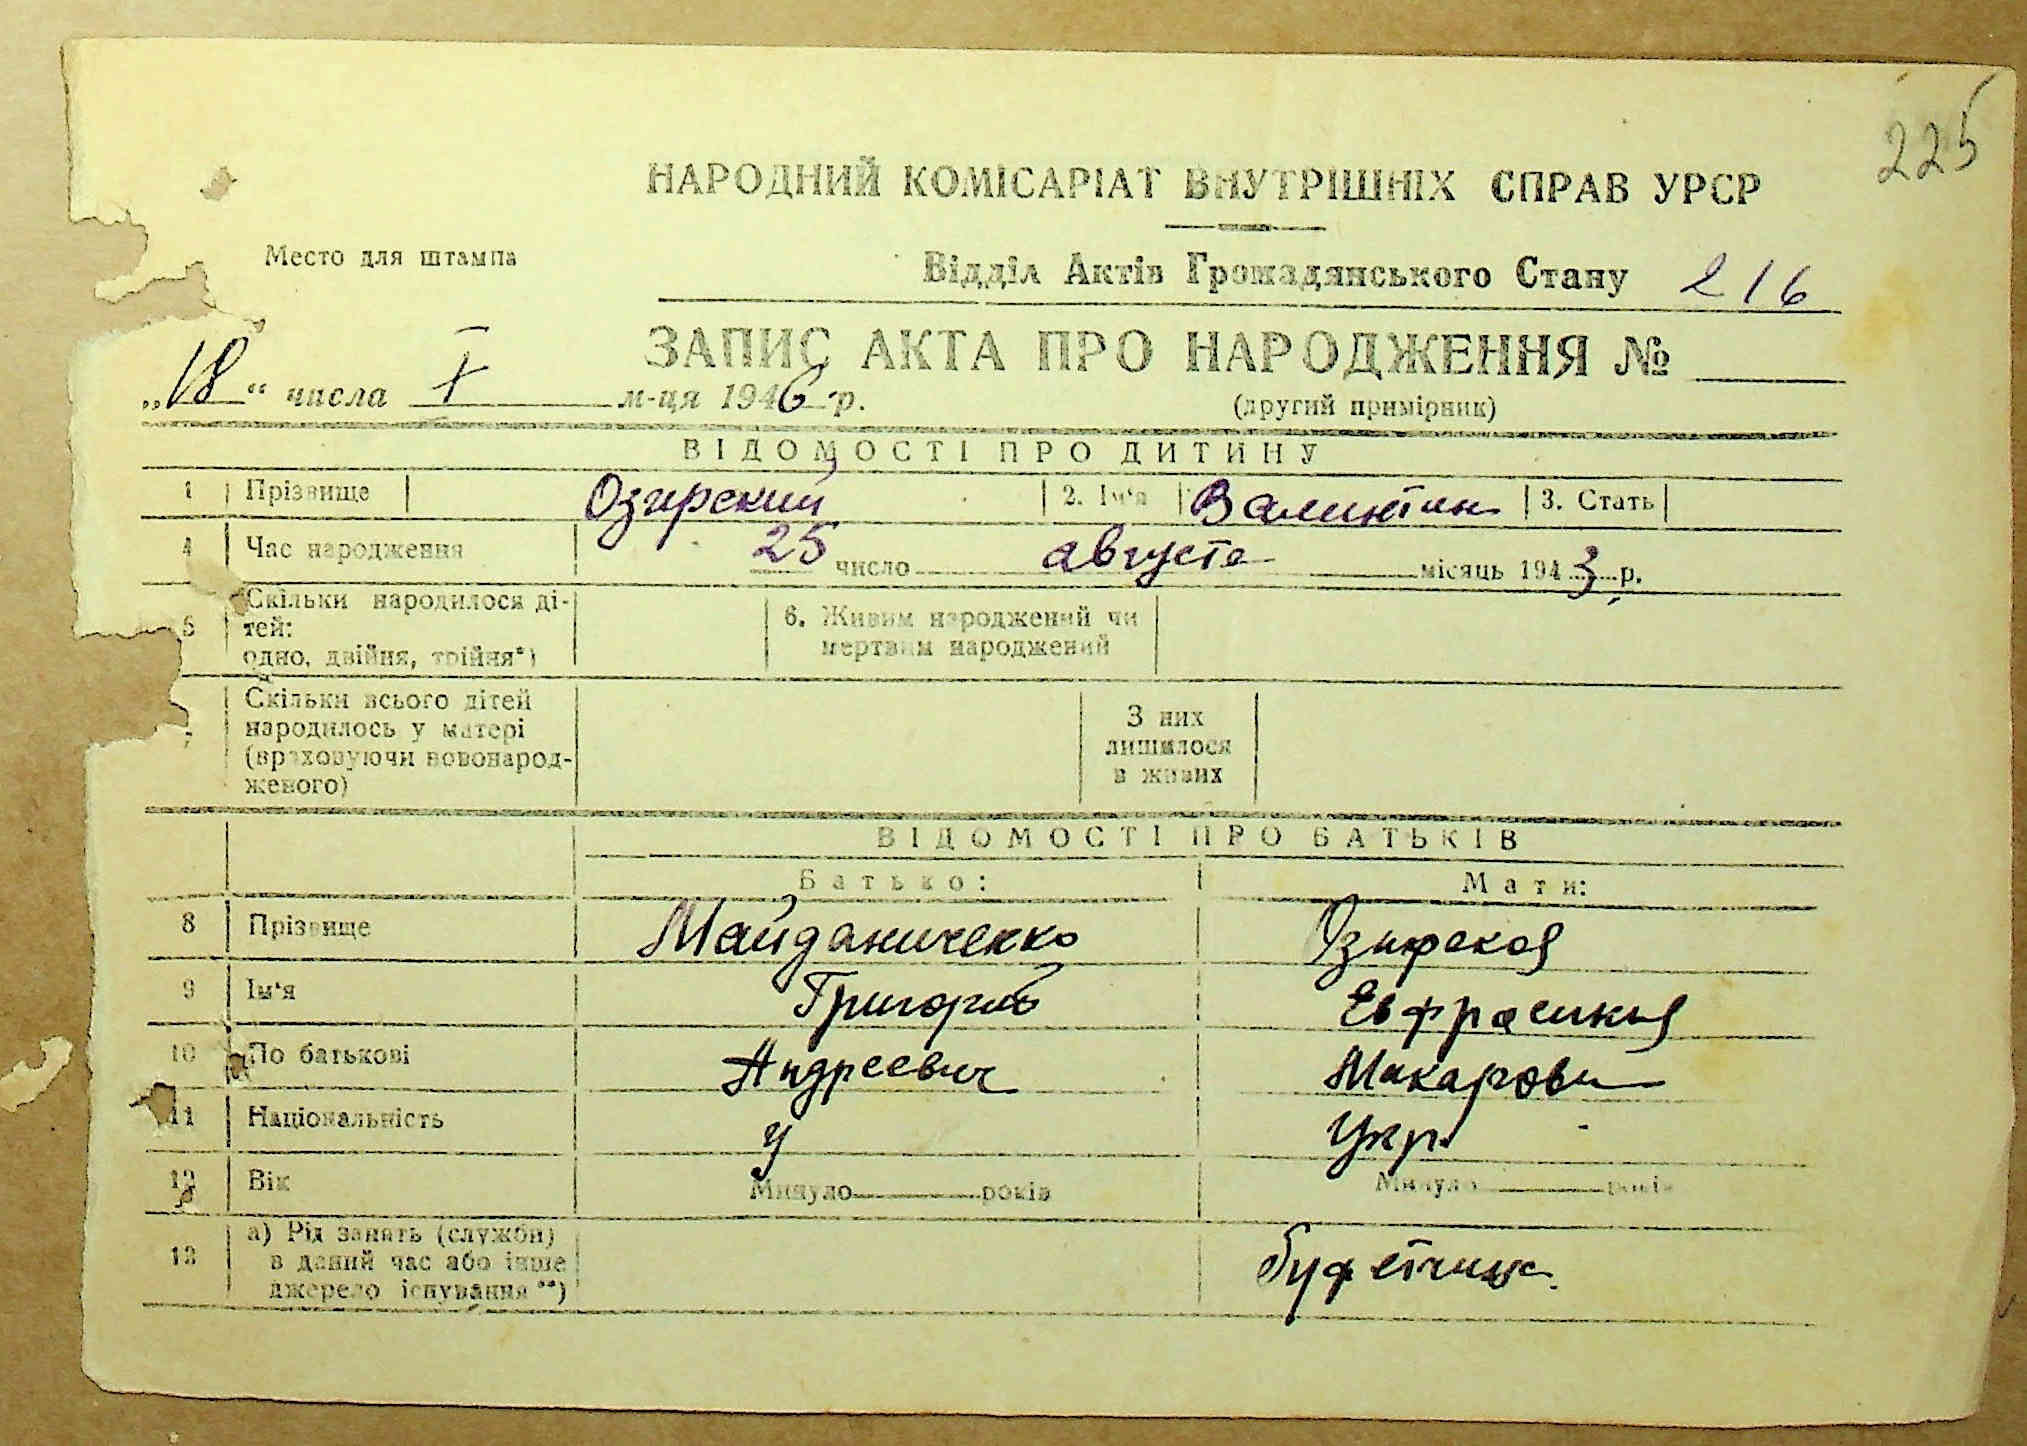 225
НАРОДНИЙ КОМІСАРІАТ ВНУТРІШНІХ СПРАВ УРСР
Место для штампа
Відділ Актів Громадянського Стану 216
ЗАПИС АКТА ПРО НАРОДЖЕННЯ №
„18“ числа X м-ця 1946 р.
(другий примірник)
ВІДОМОСТІ ПРО ДИТИНУ
1 Прізвище Озирский 2. Ім'я Валинтин 3. Стать
4 Час народження 25 число августа місяць 1943 р.
5 Скільки народилося ді-
тей:
одно, двійня, трійня*)
6. Живим народжений чи
мертвим народжений
7 Скільки всього дітей
народилось у матері
(враховуючи новонарод-
женого)
З них
лишилося
в живих
ВІДОМОСТІ ПРО БАТЬКІВ
Батько: Мати:
8 Прізвище Майданиченко Озирская
9 Ім'я Григорий Евфросинья
10 По батькові Андреевич Макаровн
11 Національність У Укр.
12 Вік Минуло років Минуло років
13 а) Рід занять (служби)
в даний час або інше
джерело існування **)
буфетчица.